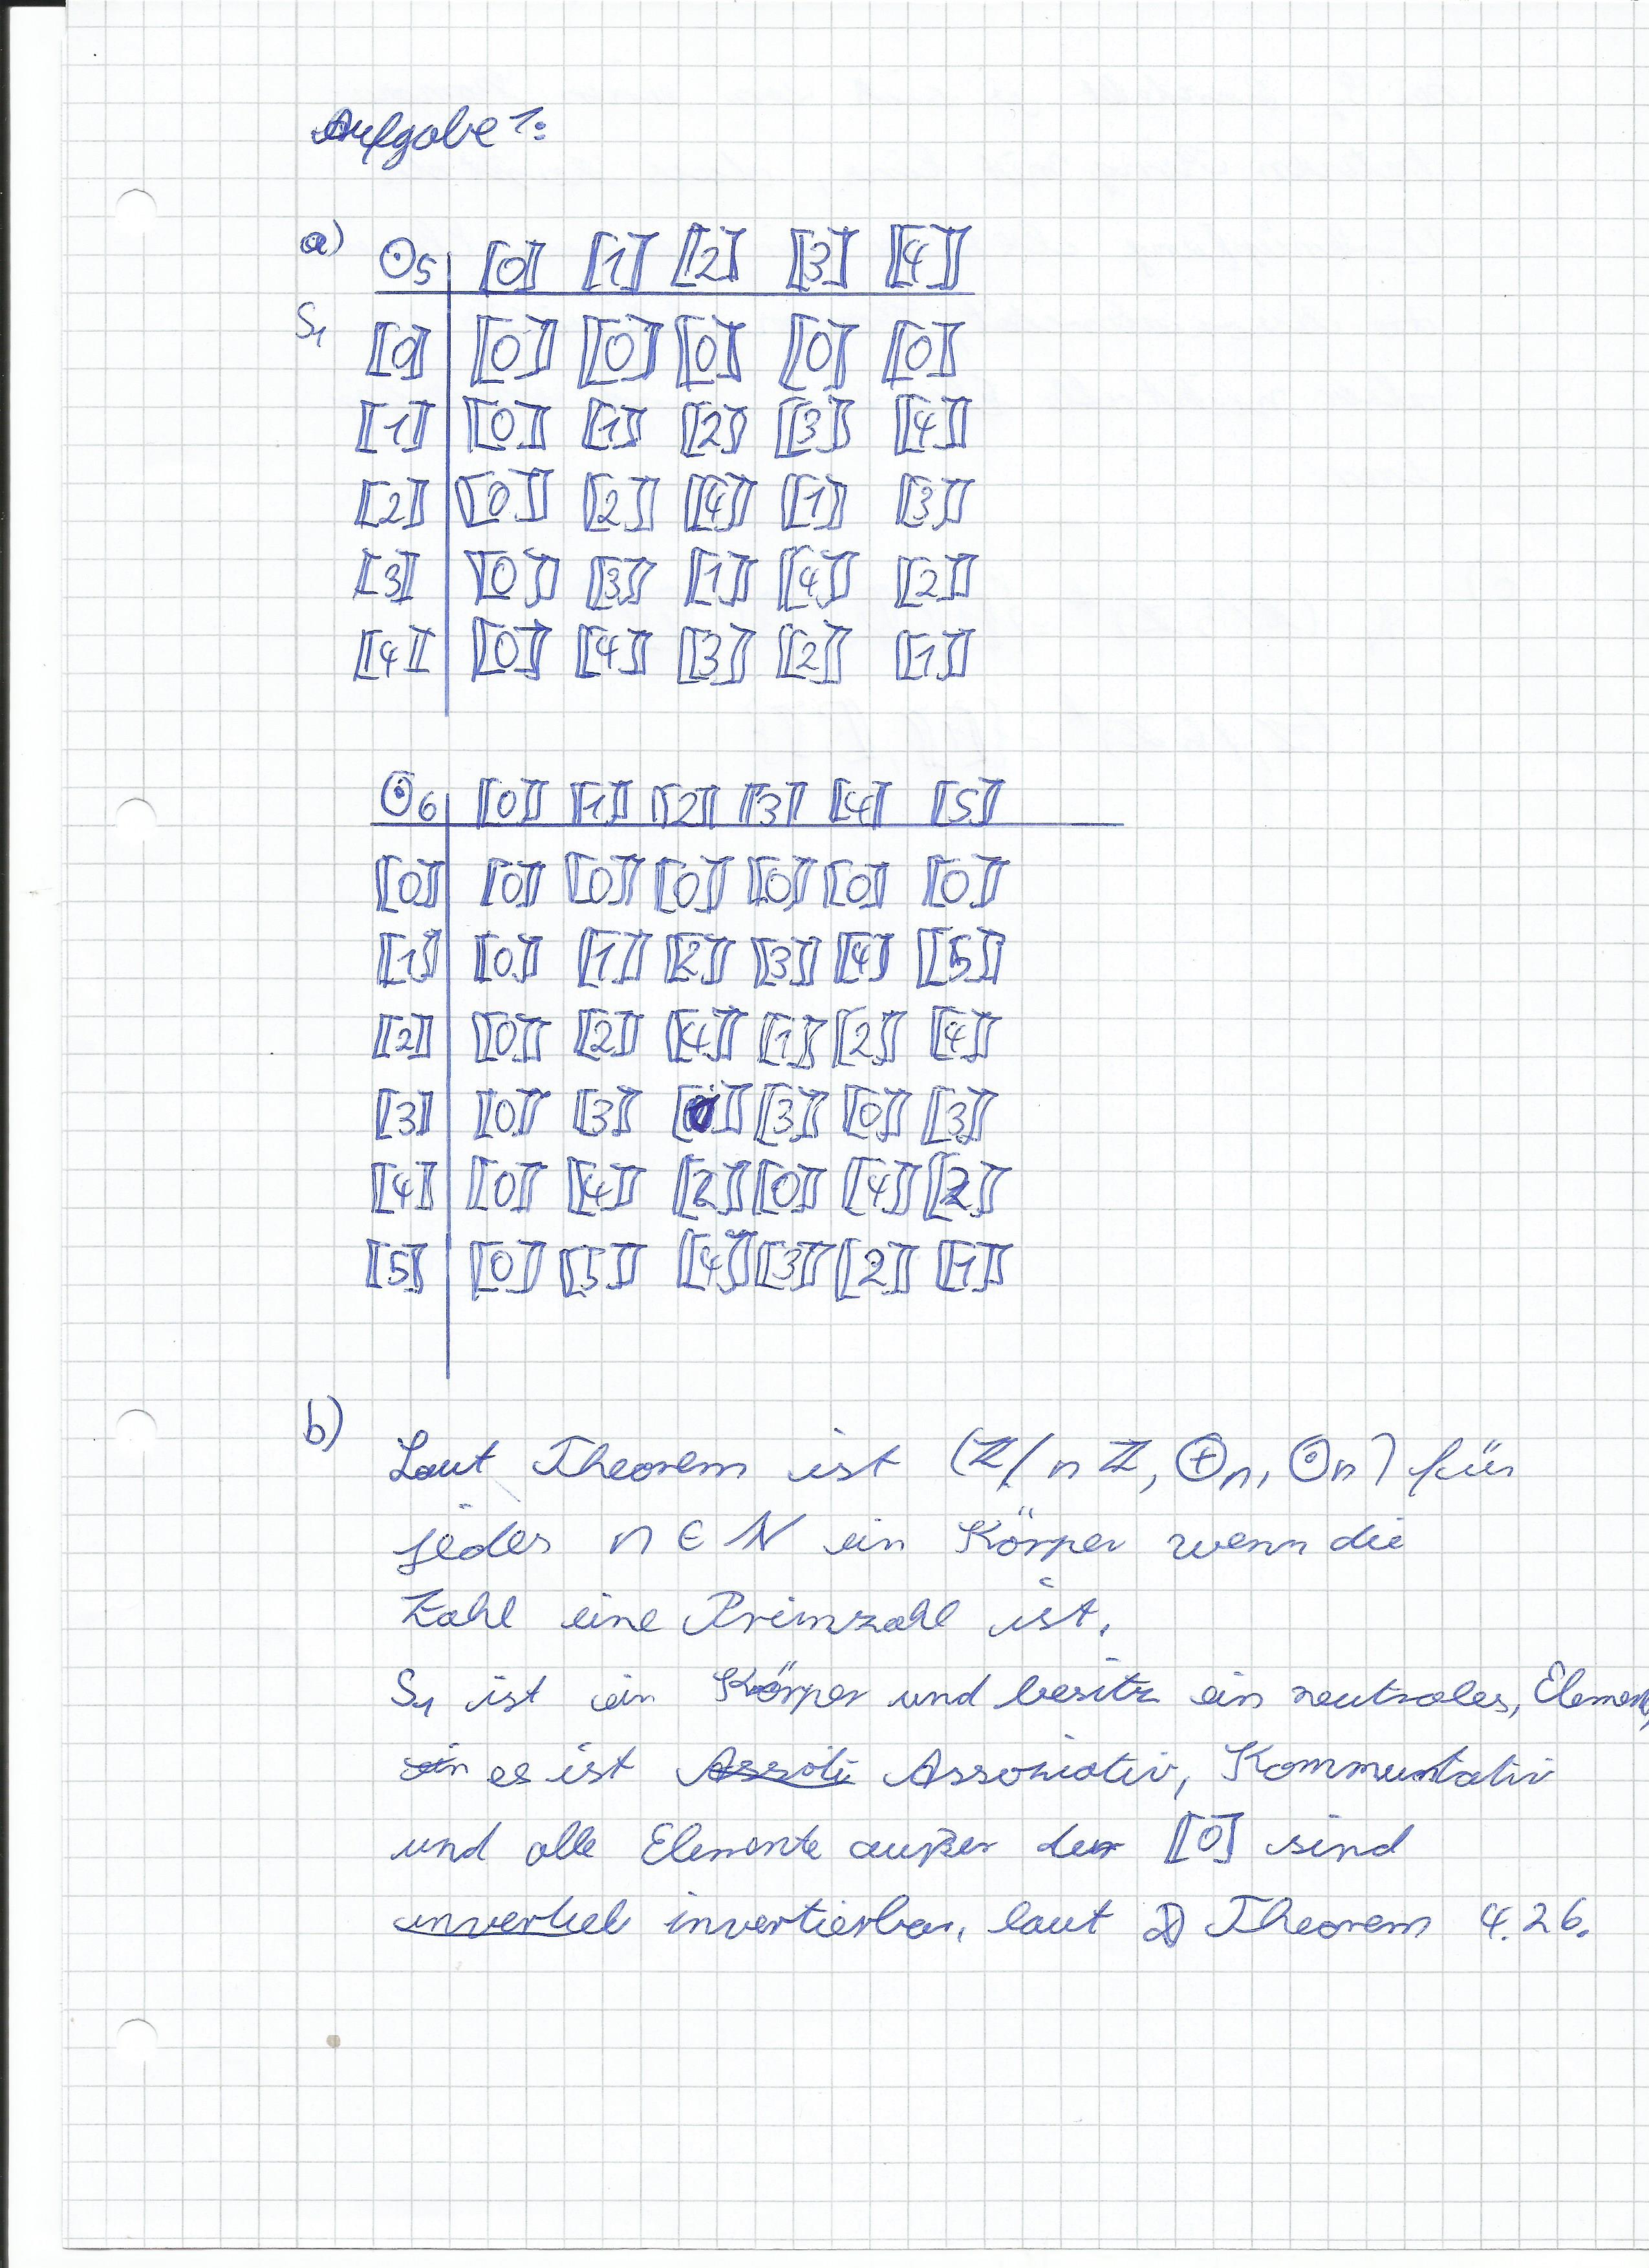 Aufgabe 1:
a) ⊙5 [[0]] [[1]] [[2]] [[3]] [[4]]
S1 [[0]] [[0]] [[0]] [[0]] [[0]] [[0]]
[[1]] [[0]] [[1]] [[2]] [[3]] [[4]]
[[2]] [[0]] [[2]] [[4]] [[1]] [[3]]
[[3]] [[0]] [[3]] [[1]] [[4]] [[2]]
[[4]] [[0]] [[4]] [[3]] [[2]] [[1]]
⊙6 [[0]] [[1]] [[2]] [[3]] [[4]] [[5]]
[[0]] [[0]] [[0]] [[0]] [[0]] [[0]] [[0]]
[[1]] [[0]] [[1]] [[2]] [[3]] [[4]] [[5]]
[[2]] [[0]] [[2]] [[4]] [[1]] [[2]] [[4]]
[[3]] [[0]] [[3]] [[0]] [[3]] [[0]] [[3]]
[[4]] [[0]] [[4]] [[2]] [[0]] [[4]] [[2]]
[[5]] [[0]] [[5]] [[4]] [[3]] [[2]] [[1]]
b) Laut Theorem ist (ℤ/nℤ, ⊕n, ⊙n) für
jedes n ∈ ℕ ein Körper wenn die
Zahl eine Primzahl ist.
S1 ist ein Körper und besitz ein neutrales, Element,
es ist Assoziativ, Kommutativ
und alle Elemente außer der [[0]] sind
invertierbar, laut Theorem 4.26.